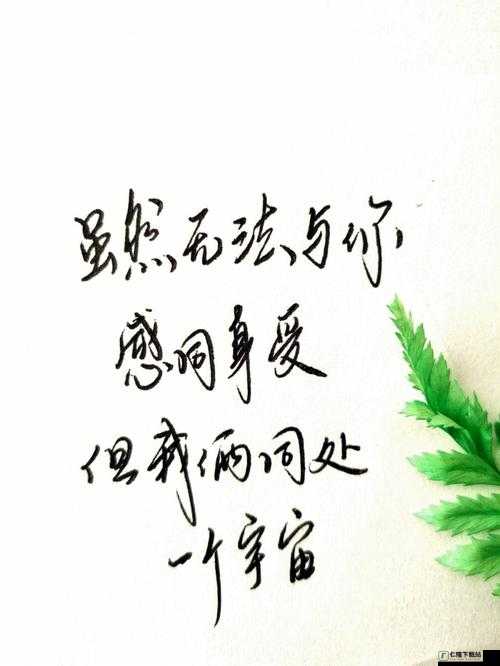 虽然无法与你
感同身受
但我俩同处
一个宇宙
仁隆下载站